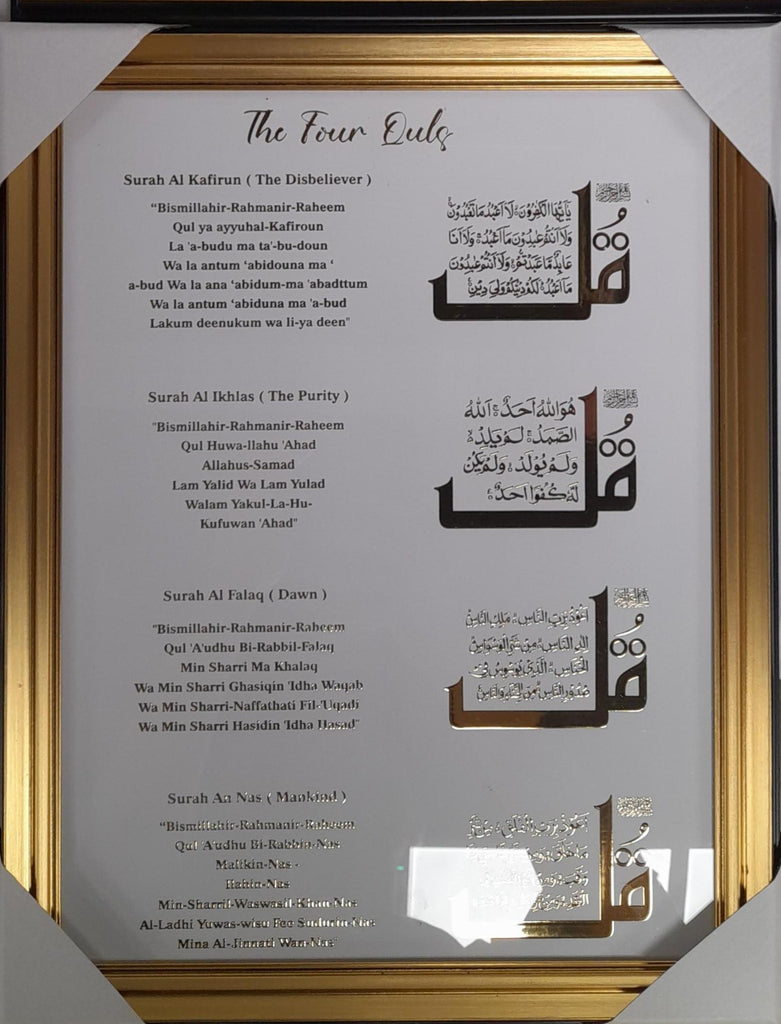 The Four Quls
Surah Al Kafirun ( The Disbeliever )
“Bismillahir-Rahmanir-Raheem
Qul ya ayyuhal-Kafiroun
La 'a-budu ma ta'-bu-doun
Wa la antum ‘abidouna ma ‘
a-bud Wa la ana ‘abidum-ma 'abadttum
Wa la antum ‘abiduna ma 'a-bud
Lakum deenukum wa li-ya deen"
قُل
يٰۤاَيُّهَا الْكٰفِرُوْنَ لَاۤ اَعْبُدُ مَا تَعْبُدُوْنَ
وَلَاۤ اَنْتُمْ عٰبِدُوْنَ مَاۤ اَعْبُدُ وَلَاۤ اَنَا
عَابِدٌ مَّا عَبَدْتُّمْ وَلَاۤ اَنْتُمْ عٰبِدُوْنَ
مَاۤ اَعْبُدُ لَكُمْ دِيْنُكُمْ وَلِيَ دِيْنِ
Surah Al Ikhlas ( The Purity )
"Bismillahir-Rahmanir-Raheem
Qul Huwa-llahu 'Ahad
Allahus-Samad
Lam Yalid Wa Lam Yulad
Walam Yakul-La-Hu-
Kufuwan 'Ahad"
قُل
هُوَ اللّٰهُ اَحَدٌ اَللّٰهُ
الصَّمَدُ لَمْ يَلِدْ
وَلَمْ يُوْلَدْ وَلَمْ يَكُنْ
لَّهٗ كُفُوًا اَحَدٌ
Surah Al Falaq ( Dawn )
"Bismillahir-Rahmanir-Raheem
Qul 'A'udhu Bi-Rabbil-Falaq
Min Sharri Ma Khalaq
Wa Min Sharri Ghasiqin 'Idha Waqab
Wa Min Sharri-Naffathati Fil-'Uqadi
Wa Min Sharri Hasidin 'Idha Hasad"
قُل
اَعُوْذُ بِرَبِّ النَّاسِ مَلِكِ النَّاسِ
اِلٰهِ النَّاسِ مِنْ شَرِّ الْوَسْوَاسِ
الْخَنَّاسِ الَّذِيْ يُوَسْوِسُ فِيْ
صُدُوْرِ النَّاسِ مِنَ الْجِنَّةِ وَالنَّاسِ
Surah An Nas ( Mankind )
“Bismillahir-Rahmanir-Raheem
Qul A'udhu Bi-Rabbin-Nas
Malikin-Nas -
Ilahin-Nas
Min-Sharril-Waswasil-Khan-Nas
Al-Ladhi Yuwas-wisu Fee Sudurin-Nas
Mina Al-Jinnati Wan-Nas"
قُل
اَعُوْذُ بِرَبِّ الْفَلَقِ